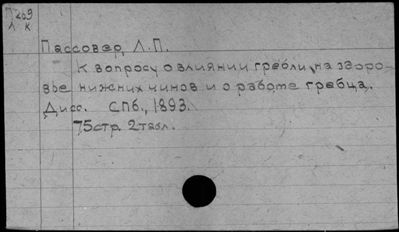 А К
Пассовер, Л.П.
К вопросу о влиянии гребли на здоро-
вье нижних чинов и о работе гребца.
Дисс. СПб., 1893.
75стр. 2табл.